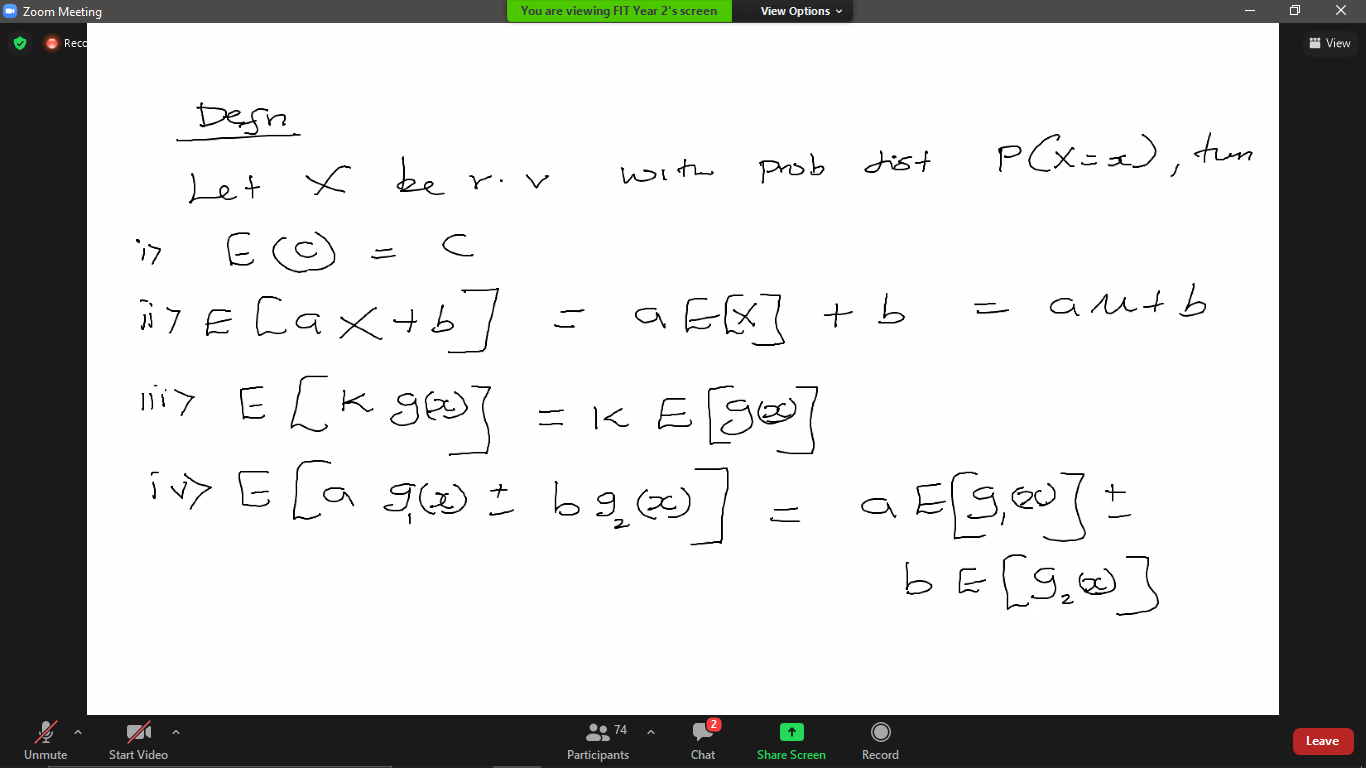 Zoom Meeting
You are viewing FIT Year 2's screen
View Options
Reco
View
Defn
Let X be r.v with prob dist P(X=x), then
i> E(c) = C
ii> E[aX+b] = a E[X] + b = aμ+b
iii> E[K g(x)] = K E[g(x)]
iv> E[a g₁(x) ± b g₂(x)] = a E[g₁(x)] ±
b E[g₂(x)]
Unmute
Start Video
74
Participants
2
Chat
Share Screen
Record
Leave